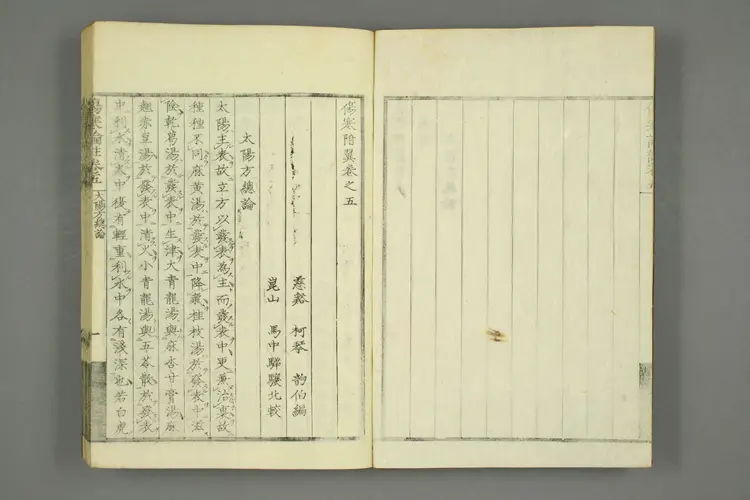 傷寒附翼卷之五
慈谿 柯琴 韵伯編
崑山 馬中驊驤北較
太陽方總論
太陽主表故立方以發表為主而發表中更兼治裏故
種種不同麻黄湯於發表中降氣桂枝湯於發表中滋
陰乾葛湯於發表中生津大青龍湯與麻杏甘膏湯麻
翹赤豆湯於發表中清火小青龍湯與五苓散於發表
中利水清火中復有輕重利水中各有淺深也若白虎
傷寒論註卷五 太陽方總論 一